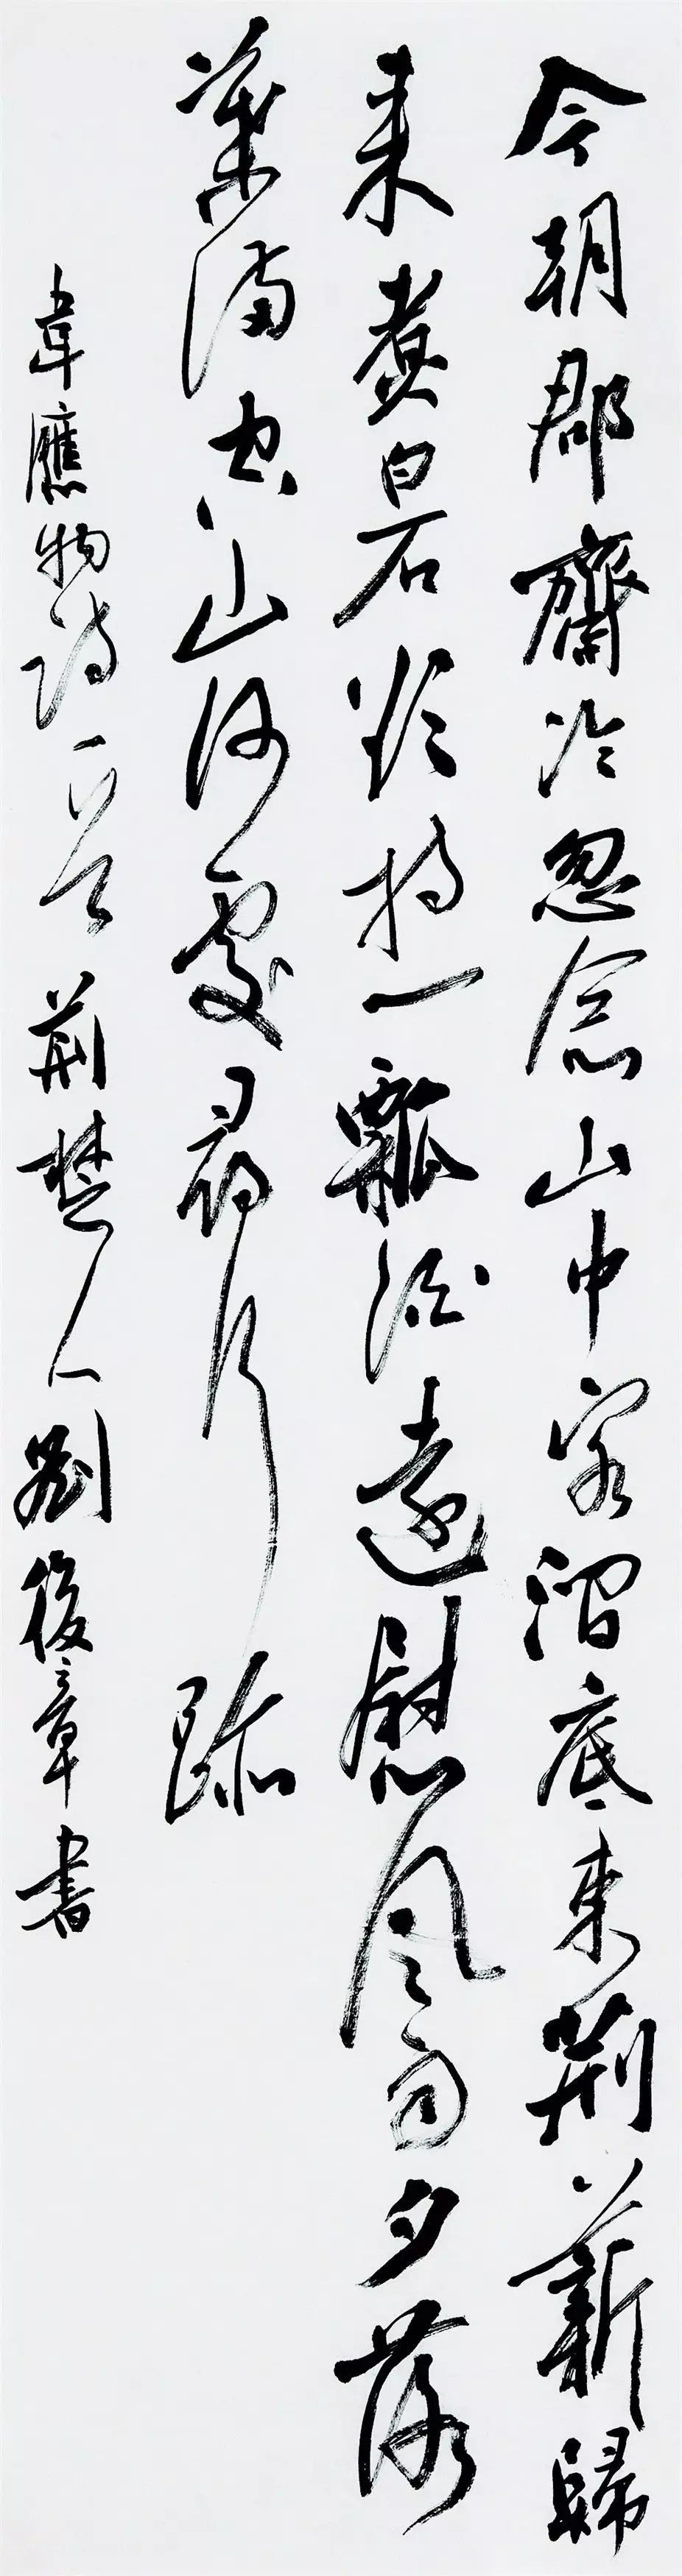 今朝郡齋冷忽念山中客澗底束荆薪歸
来煮白石欲持一瓢酒遠慰風雨夕落
葉滿空山何處尋行跡
韋應物詩一首荊楚人劉復章書